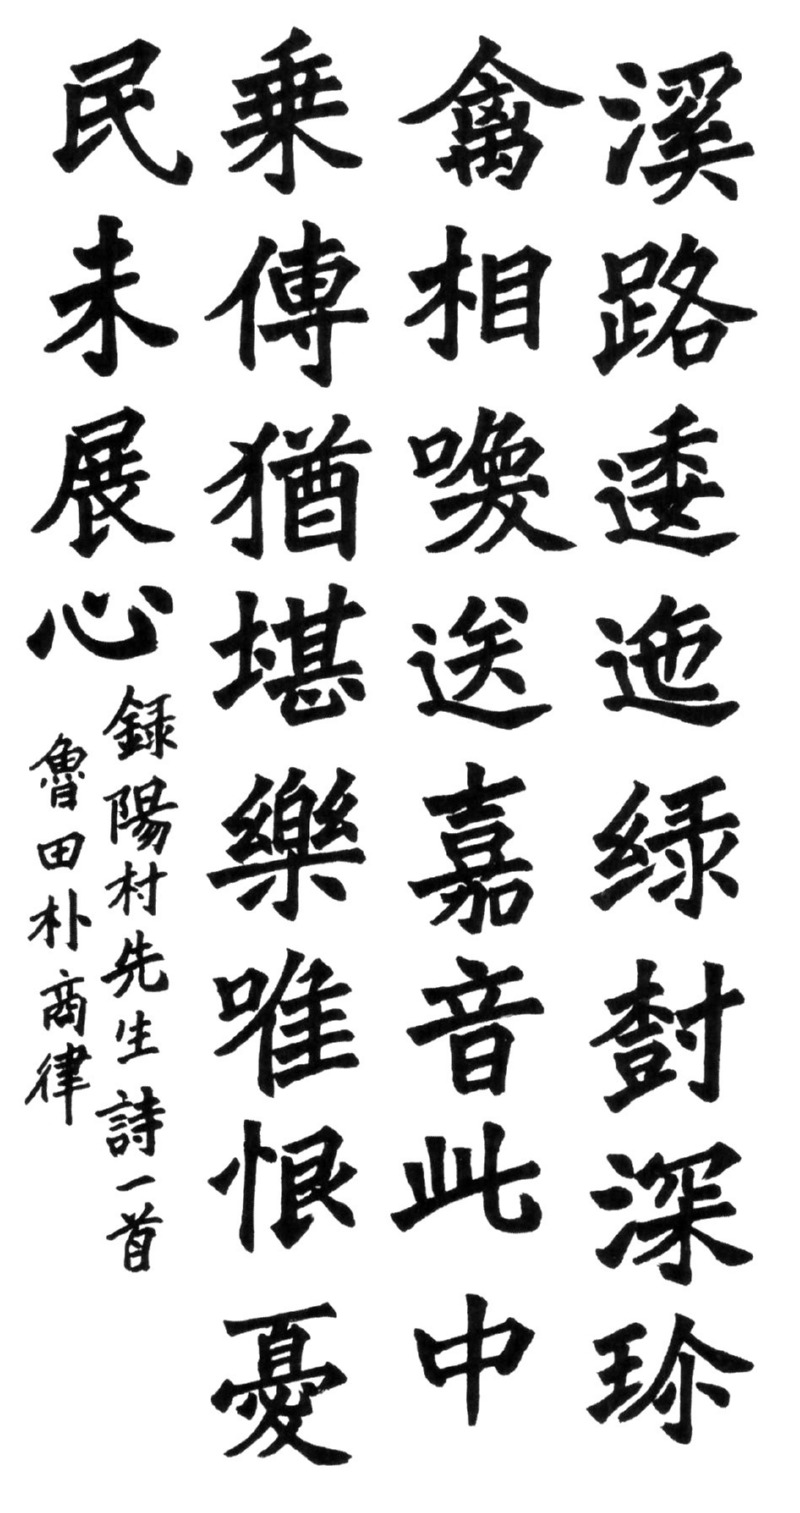 溪路逶迤緑樹深珎
禽相喚送嘉音此中
乗傳猶堪樂唯恨憂
民未展心
録陽村先生詩一首
魯田朴商律